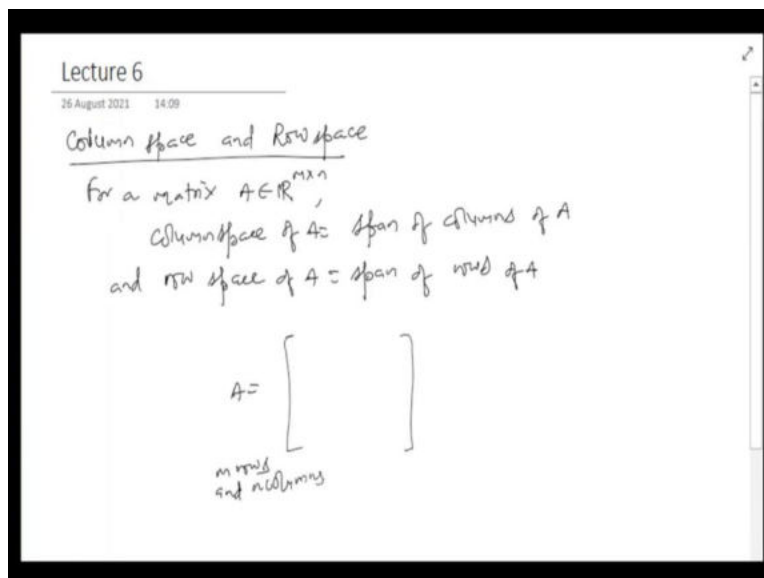 Lecture 6
26 August 2021 14:09
Column space and Row space
For a matrix A∈ℝ^{m×n},
column space of A = span of columns of A
and row space of A = span of rows of A
A = [ ]
m rows
and n columns